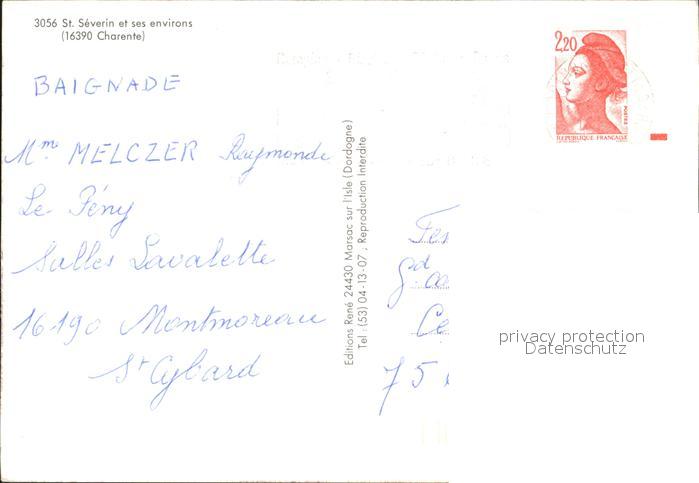 3056 St. Séverin et ses environs
(16390 Charente)
BAIGNADE
Mme MELCZER Raymonde
Le Pény
Salles Lavalette
16190 Montmoreau
St Cybard
Editions René 24430 Marsac sur l'Isle (Dordogne)
Tel : (53) 04-13-07 ; Reproduction Interdite
2,20
POSTES
REPUBLIQUE FRANÇAISE
Gd
Ce
75
privacy protection
Datenschutz